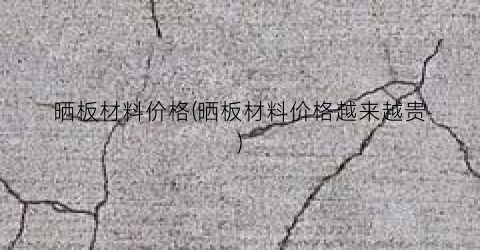 晒板材料价格(晒板材料价格越来越贵
)